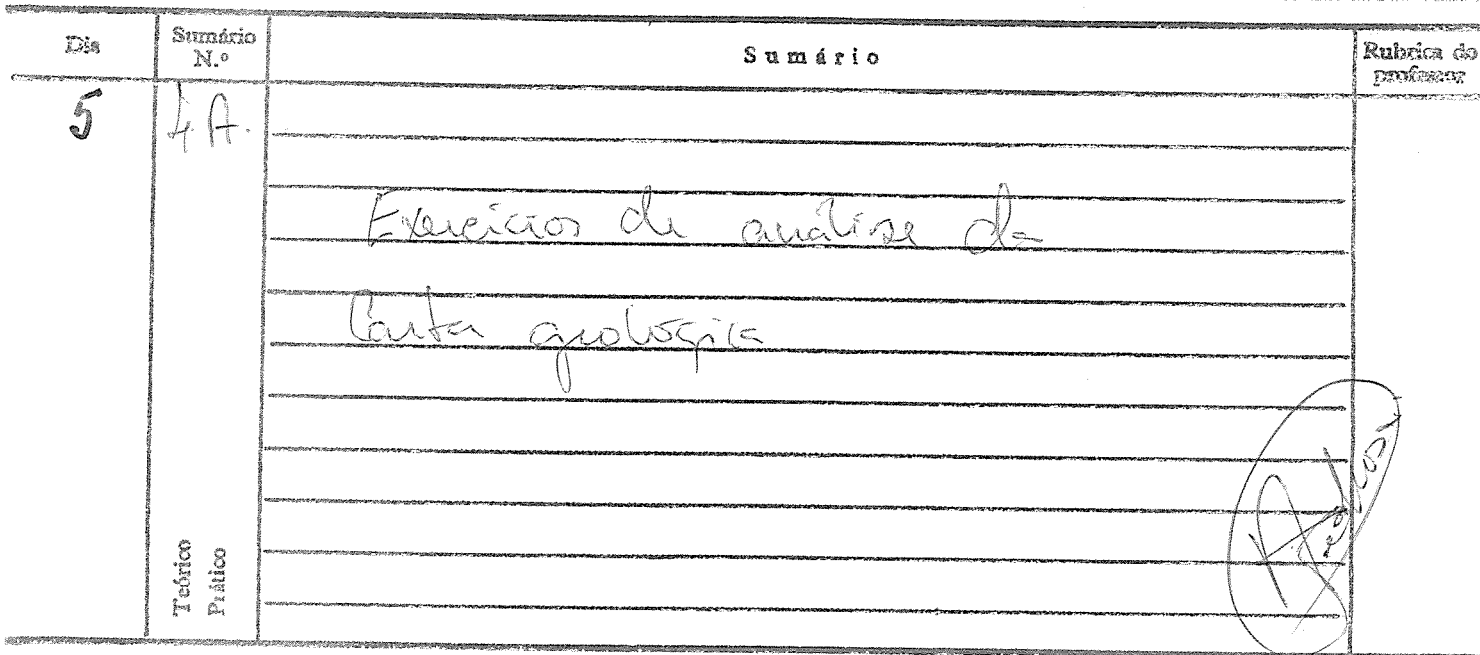 Dia Sumário N.º Sumário Rubrica do professor
5 4A.
Exercícios de análise da
Carta geológica
Teórico
Prático